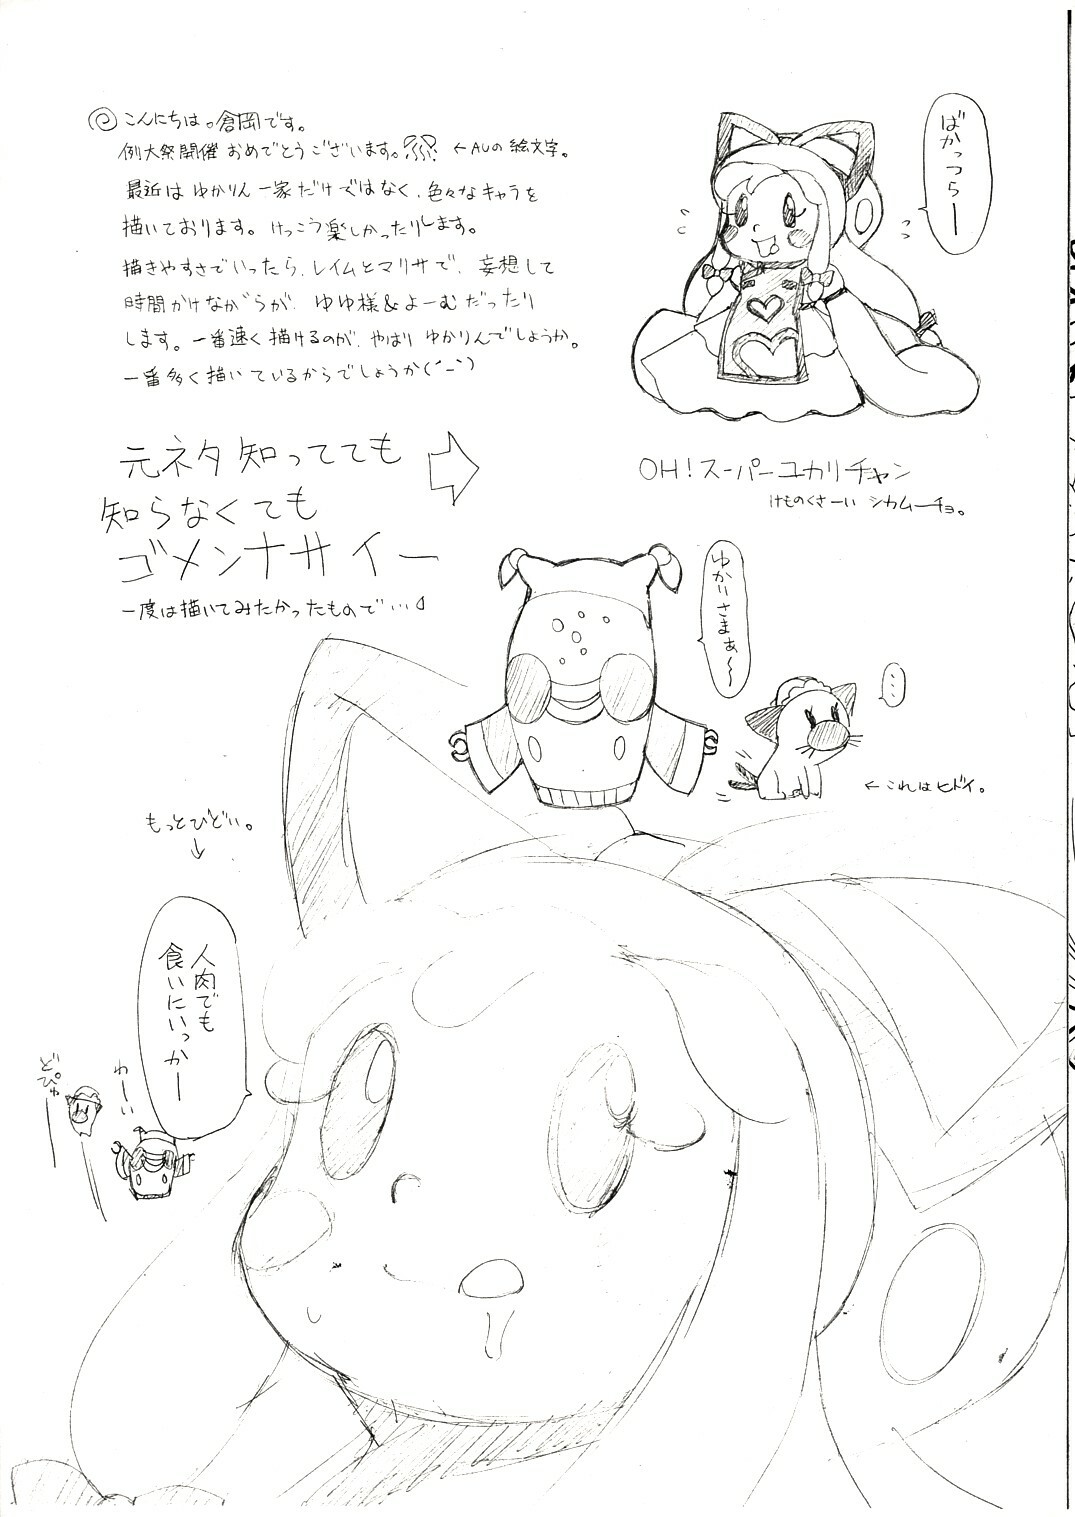 こんにちは。倉岡です。
例大祭開催おめでとうございます。 ←AUの絵文字。
最近はゆかりん一家だけではなく、色々なキャラを
描いております。けっこう楽しかったりします。
描きやすさでいったら、レイムとマリサで、妄想して
時間かけながらが、ゆゆ様&よーむだったり
します。一番速く描けるのが、やはりゆかりんでしょうか。
一番多く描いているからでしょうか(´_`)
元ネタ知ってても
知らなくても
ゴメンナサイー
一度は描いてみたかったもので…
ばかっつらー
OH!スーパーユカリチャン
けものくさーい シカムーチョ。
ゆかりさまぁ～
…
←これはヒドイ。
もっとひどい。
↓
人肉でも
食いにいっかー
わーい
どぴゅー